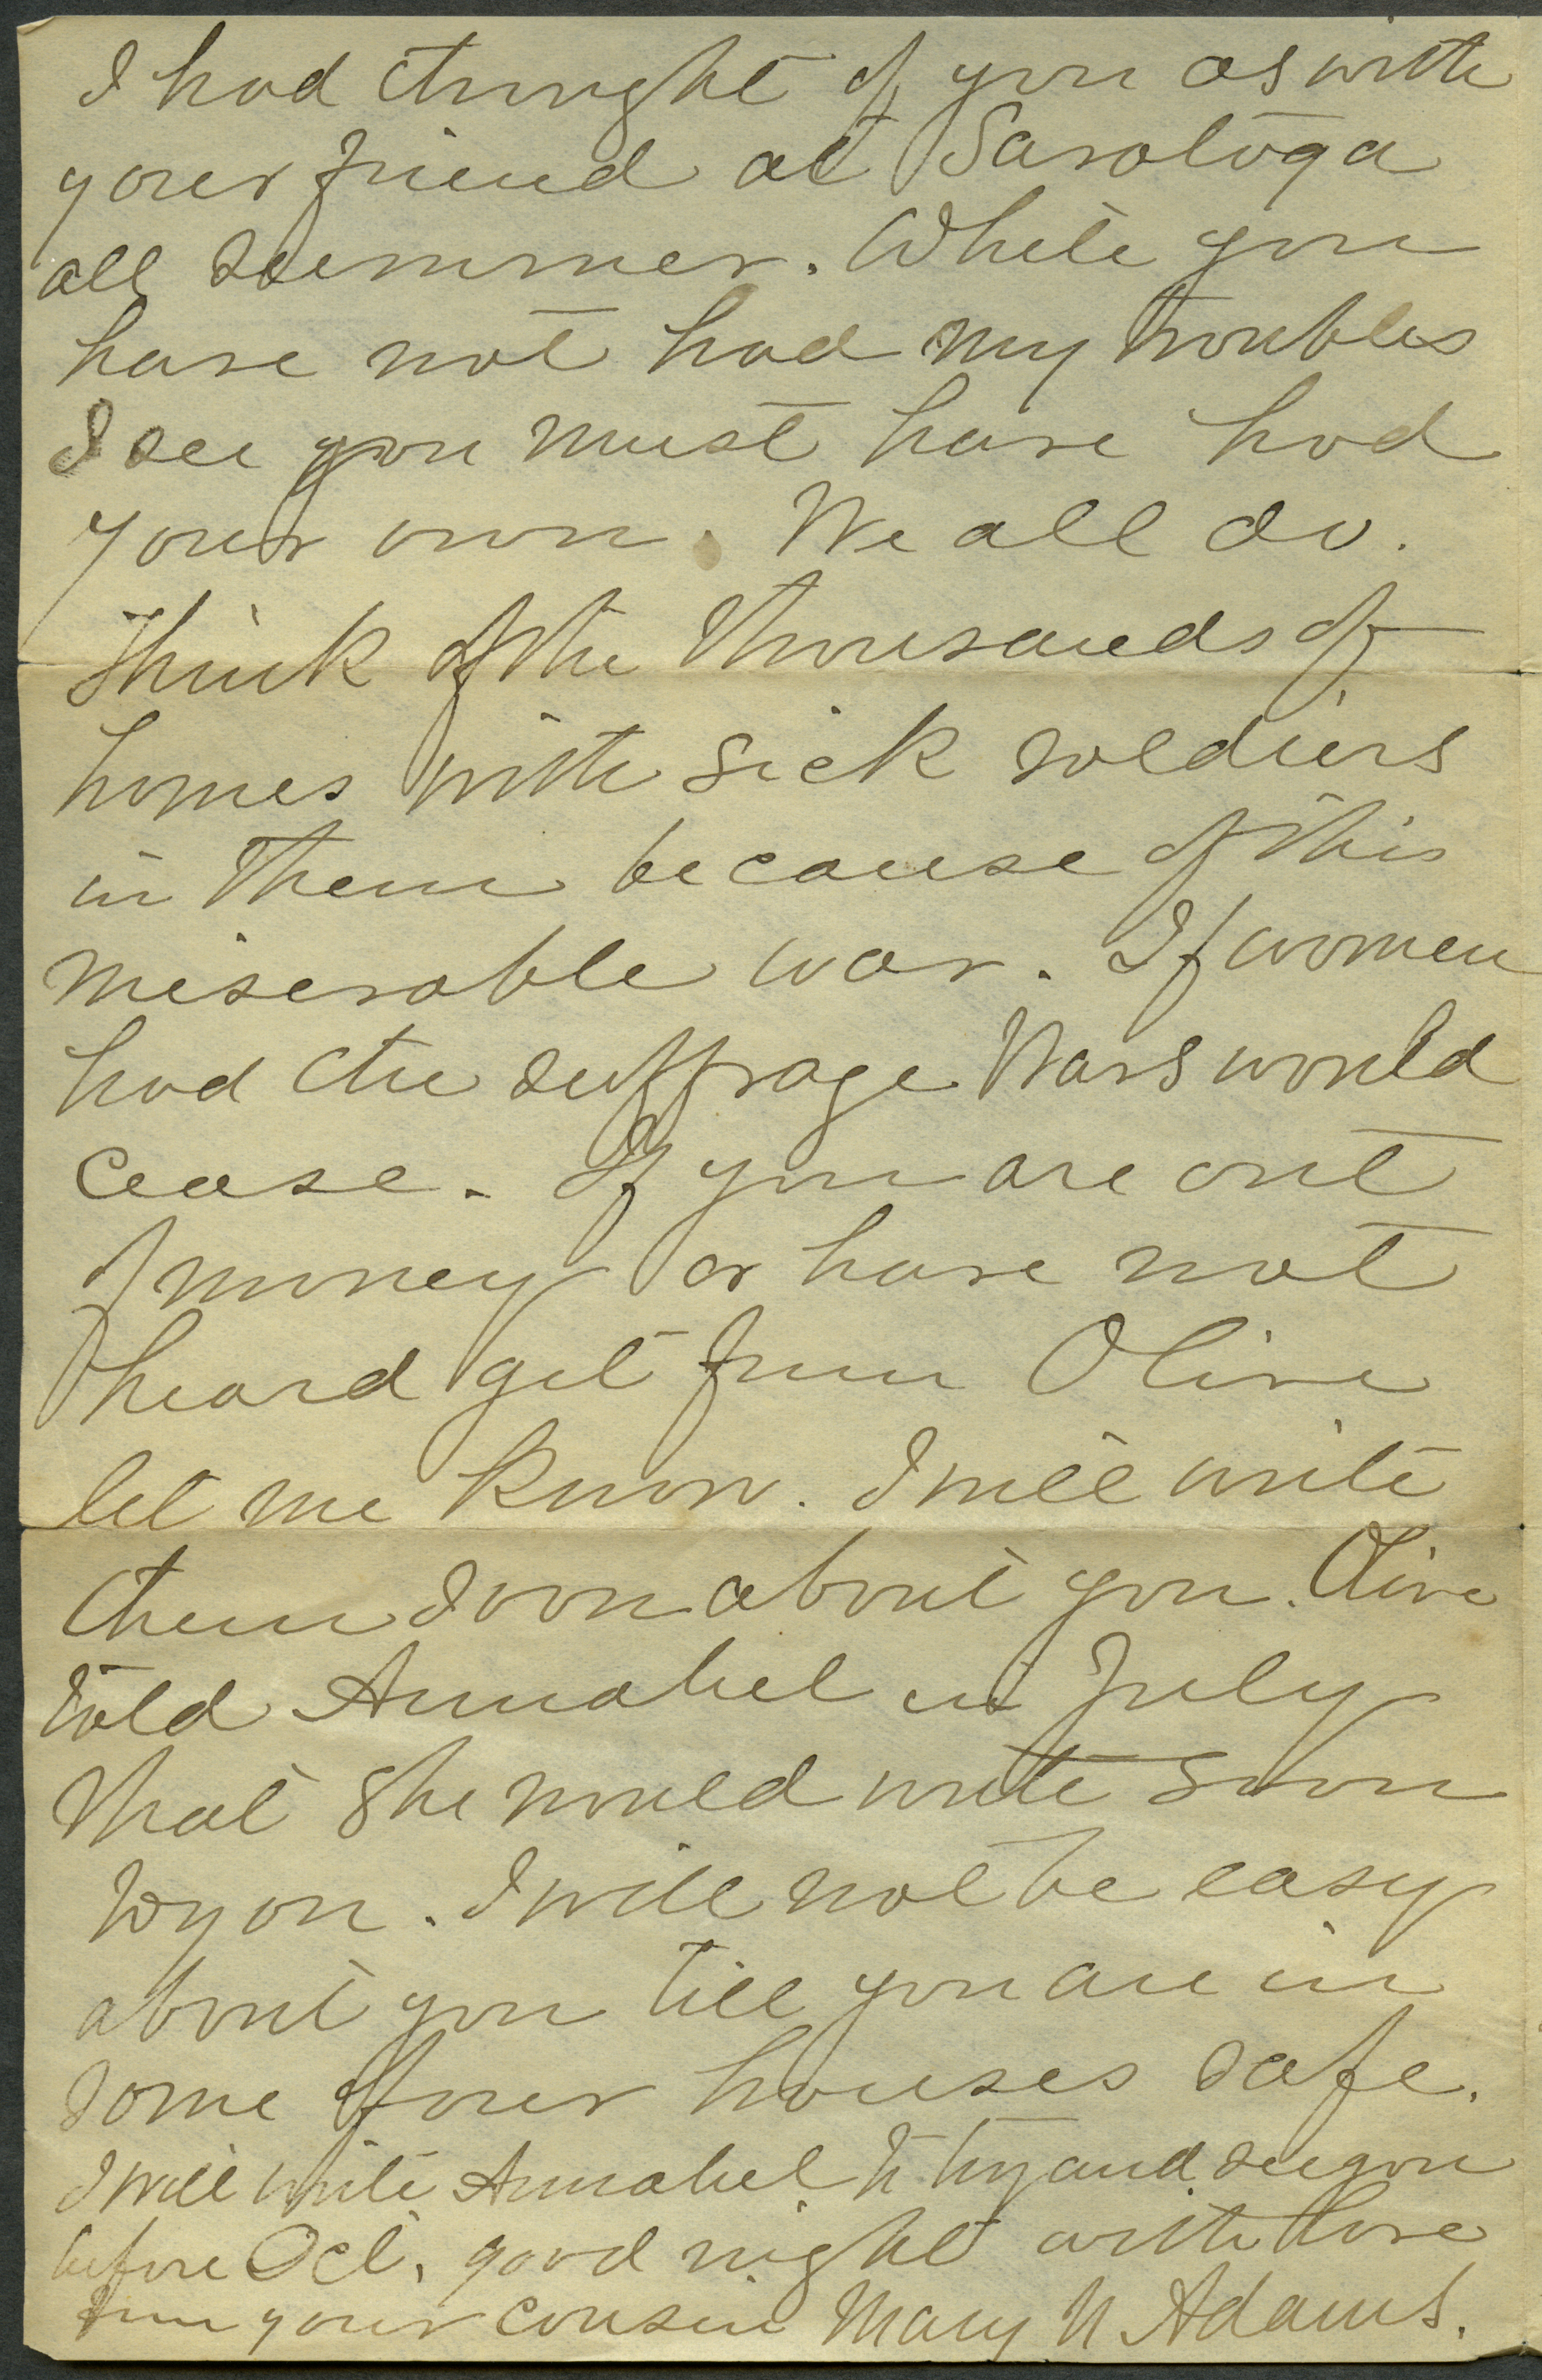 I had thought of you as with
your friend at Saratoga
all summer. While you
have not had my troubles
I see you must have had
your own. We all do.
Think of the thousands of
homes with sick soldiers
in them because of this
miserable war. If women
had the suffrage Wars would
cease. If you are out
of money or have not
heard yet from Olive
let me know. I will write
them soon about you. Olive
told Annabel in July
that she would write soon
to you. I will not be easy
about you till you are in
some of our houses safe.
I will write Annabel to try and see you
before Oct. good night with love
from your cousin Mary N Adams.